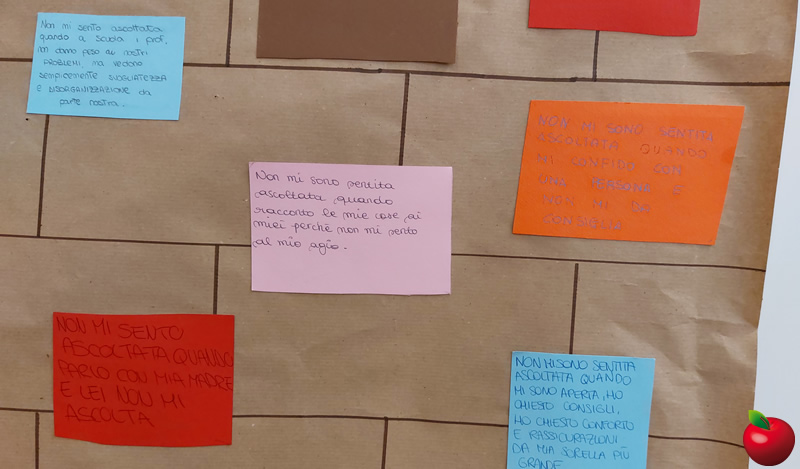 Non mi sento ascoltata
quando a scuola i prof,
non danno peso ai nostri
PROBLEMI, ma vedono
semplicemente SVOGLIATEZZA
E DISORGANIZZAZIONE da
parte nostra.
NON MI SONO SENTITA
ASCOLTATA QUANDO
MI CONFIDO CON
UNA PERSONA E
NON MI DÀ
CONSIGLIO
Non mi sono sentita
ascoltata quando
racconto le mie cose ai
miei perchè non mi sento
al mio agio.
NON MI SENTO
ASCOLTATA QUANDO
PARLO CON MIA MADRE
E LEI NON MI
ASCOLTA
NON MI SONO SENTITA
ASCOLTATA QUANDO
MI SONO APERTA, HO
CHIESTO CONSIGLI,
HO CHIESTO CONFORTO
E RASSICURAZIONI
DA MIA SORELLA PIÙ
GRANDE